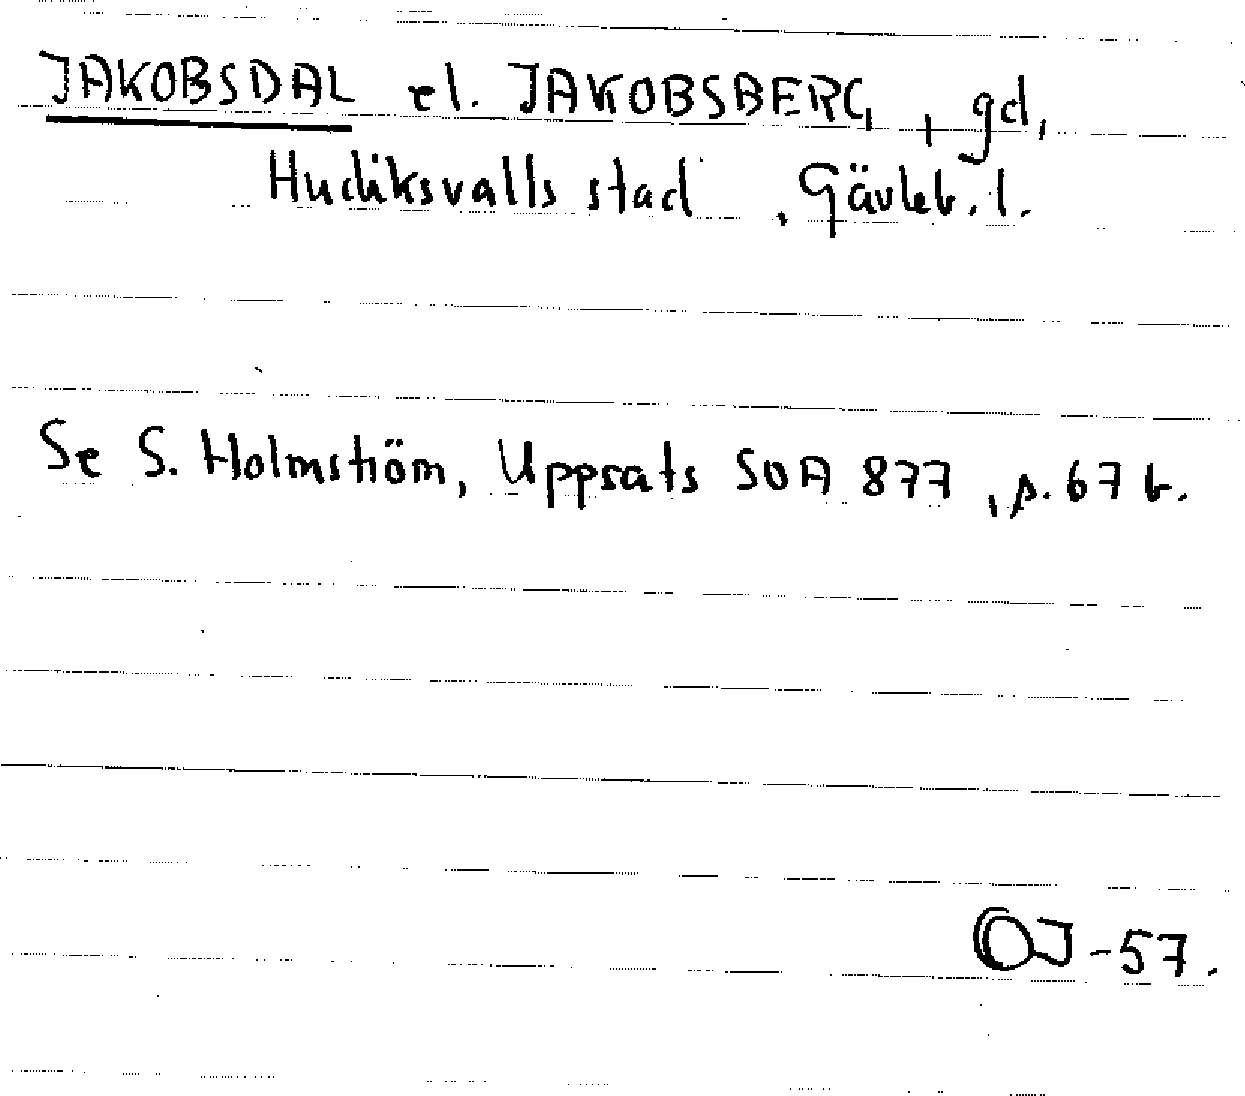 JAKOBSDAL el. JAKOBSBERG, gd,
Hudiksvalls stad, Gävleb. l.
Se S. Holmström, Uppsats SOA 877, s. 67 b.
OJ -57.